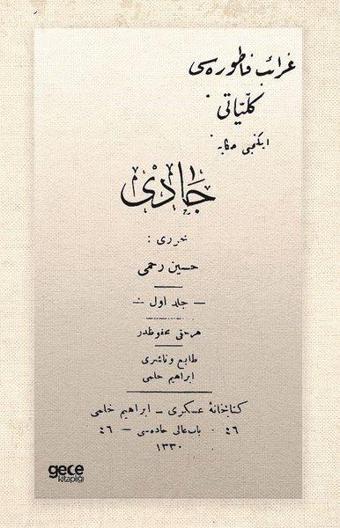 غرائب فاطوره‌سی
كلّیاتی
ایكنجی حكایه
جادی
محرری :
حسین رحمی
— جلد اول —
هر حقی محفوظدر
طابع و ناشری
ابراهیم حلمی
كتابخانهٔ عسكری – ابراهیم حلمی
٤٦ · باب عالی جاده‌سی – ٤٦
١٣٣٠
gece
kitaplığı